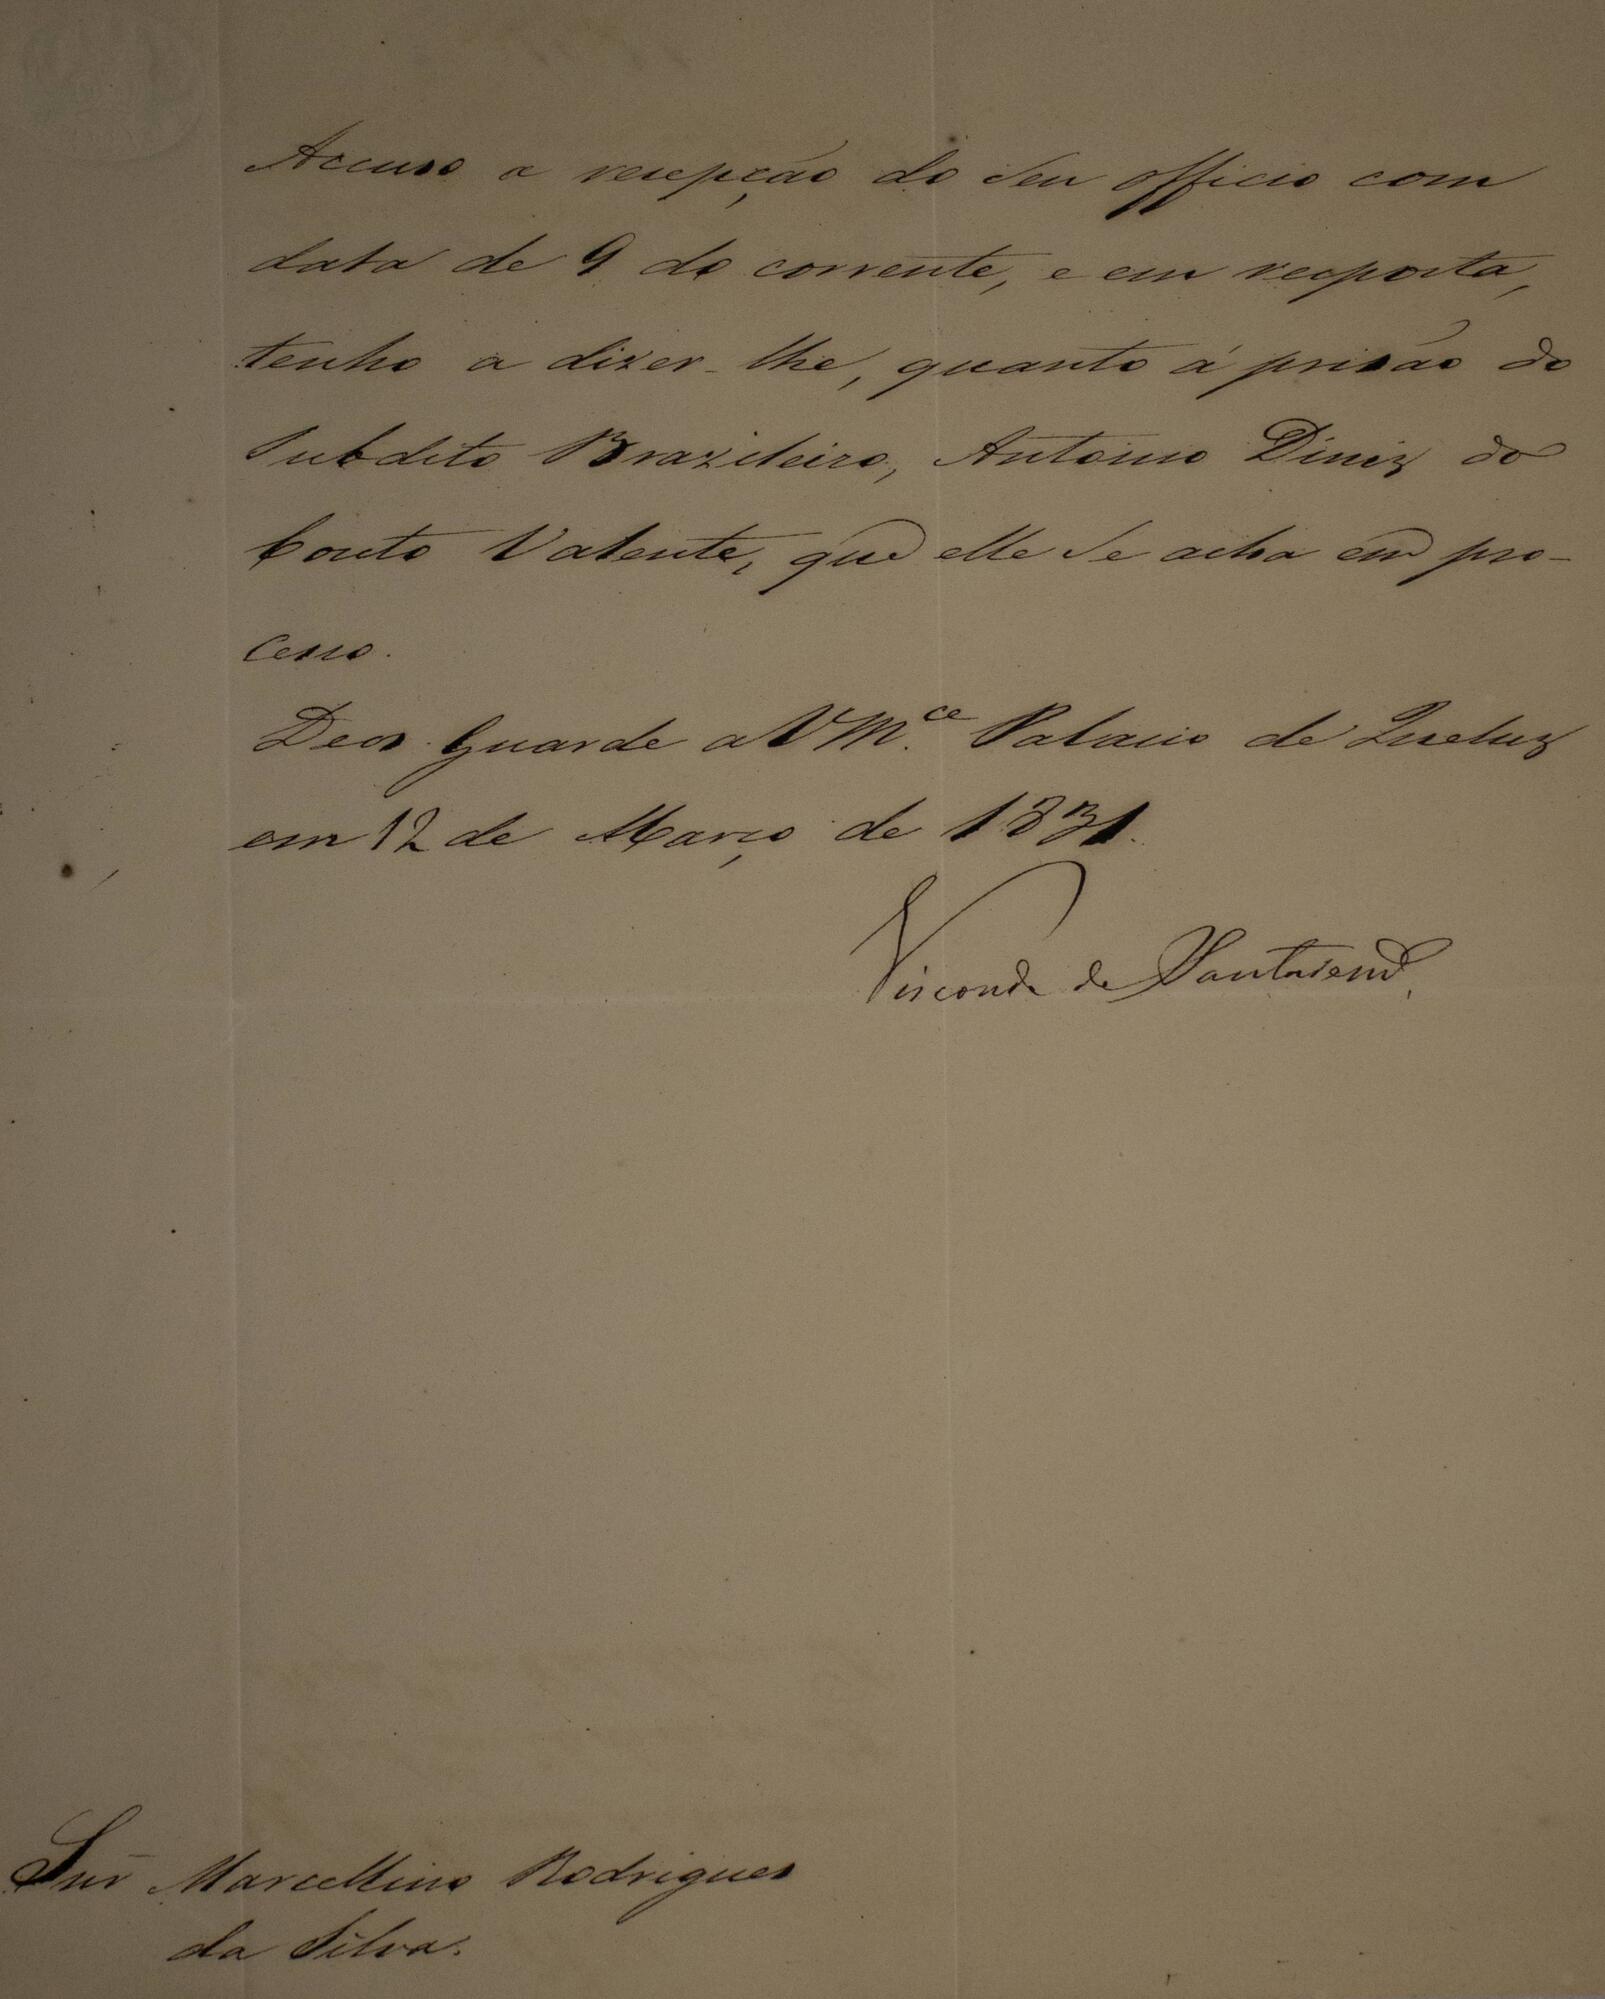 Accuso a recepção do seu officio com
data de 9 do corrente, e em resposta,
tenho a dizer-lhe, quanto á prisão do
Subdito Brazileiro, Antonio Diniz do
Couto Valente, que elle se acha em pro-
cesso.
Deos Guarde a VM.ce Palacio de Queluz
em 12 de Março de 1831.
Visconde de Santarem.
Snr Marcellino Rodrigues
da Silva.